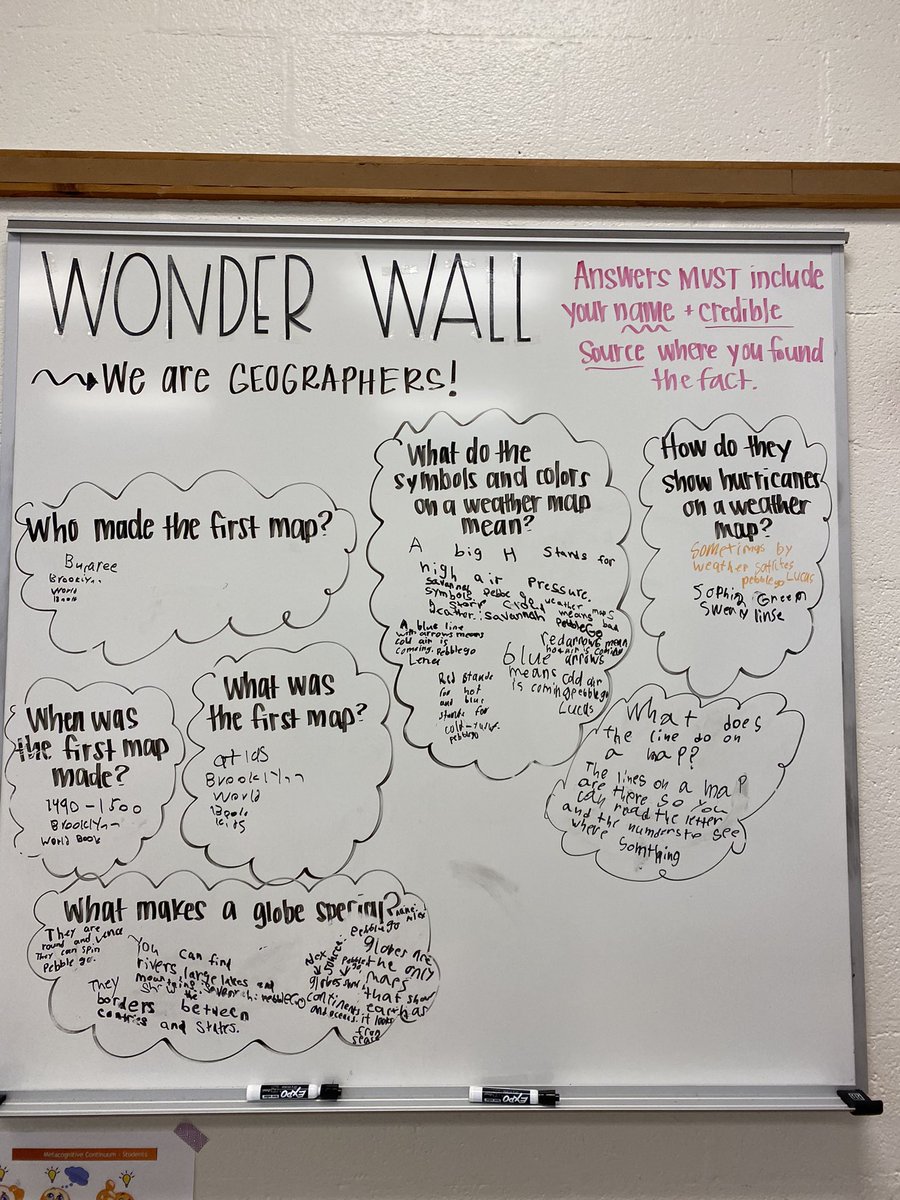 WONDER WALL
We are GEOGRAPHERS!
Answers MUST include
your name + credible
Source where you found
the fact.
Who made the first map?
Brooklynn
World
Book
What do the
symbols and colors
on a weather map
mean?
A big H stands for
high air pressure.
Savannah
symbols
weather maps
means bad
weather. Savannah PebbleGo
A blue line
with arrows means
cold air is
coming. Pebblego
Lena
Red Stands
for hot
and blue
stands for
cold
pebblego
red arrows mean
hot air is coming
blue arrows
means cold air
is coming pebblego
Lucas
How do they
show hurricanes
on a weather
map?
Sometimes by
weather
pebblego Lucas
When was
the first map
made?
1490-1500
Brooklynn
World Book
What was
the first map?
Brooklynn
World
Book
kids
What does
the line do on
a map?
The lines on a map
are there so you
can read the letter
and the numbers to see
where
Somthing
What makes a globe special?
They are
round and
They can spin
Pebble go.
You can find
rivers large lakes and
PebbleGO
They
the
borders between
and States.
Alex
Source:
Pebble
go
globes
continents
and
name:
Pebblego Alex
globes are
the only
maps
that show
earth as
it looks
from
space
EXPO
EXPO
Metacognitive Continuum - Students